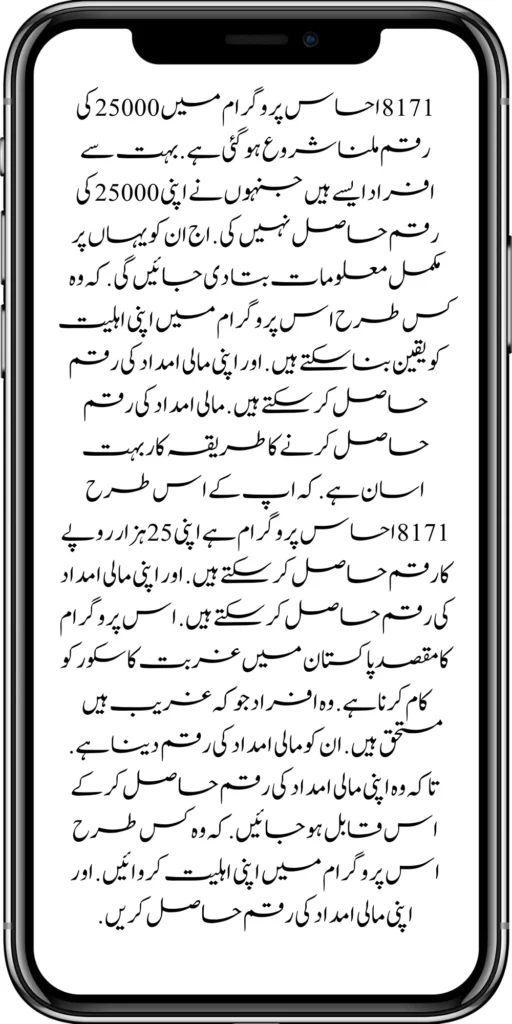 8171احساس پروگرام میں 25000 کی
رقم ملنا شروع ہو گئی ہے. بہت سے
افراد ایسے ہیں جنہوں نے اپنی 25000 کی
رقم حاصل نہیں کی. اج ان کو یہاں پر
مکمل معلومات بتا دی جائیں گی. کہ وہ
کس طرح اس پروگرام میں اپنی اہلیت
کو یقین بنا سکتے ہیں. اور اپنی مالی امداد کی رقم
حاصل کر سکتے ہیں. مالی امداد کی رقم
حاصل کرنے کا طریقہ کار بہت
اسان ہے. کہ اپ کے اس طرح
8171احساس پروگرام ہے اپنی 25 ہزار روپے
کا رقم حاصل کر سکتے ہیں. اور اپنی مالی امداد
کی رقم حاصل کر سکتے ہیں. اس پروگرام
کا مقصد پاکستان میں غربت کا سکور کو
کام کرنا ہے. وہ افراد جو کہ غریب ہیں
مستحق ہیں. ان کو مالی امداد کی رقم دینا ہے.
تاکہ وہ اپنی مالی امداد کی رقم حاصل کر کے
اس قابل ہو جائیں. کہ وہ کس طرح
اس پروگرام میں اپنی اہلیت کروائیں. اور
اپنی مالی امداد کی رقم حاصل کریں.